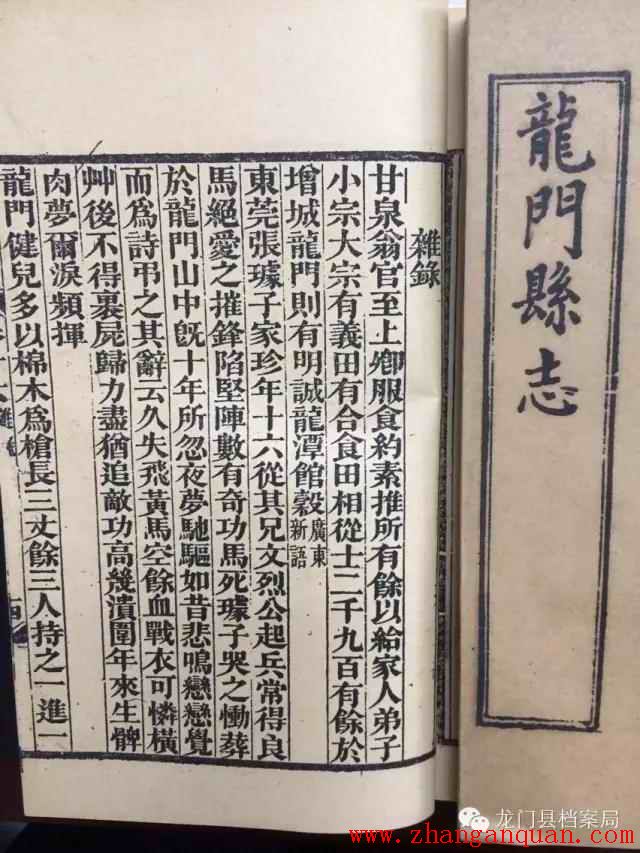 龍門縣志
雜錄
甘泉翁官至上卿服食約素推所有餘以給家人弟子
小宗大宗有義田有合食田相從士二千九百有餘於
增城龍門則有明誠龍潭館穀廣東新語
東莞張璩子家珍年十六從其兄文烈公起兵常得良
馬絕愛之摧鋒陷堅陣數有奇功馬死璩子哭之慟葬
於龍門山中旣十年所忽夜夢馳驅如昔悲鳴戀戀覺
而爲詩弔之其辭云久失飛黃馬空餘血戰衣可憐橫
艸後不得裹屍歸力盡猶追敵功高幾潰圍年來生髀
肉夢爾淚頻揮
龍門健兒多以棉木爲槍長三丈餘三人持之一進一
龙门县档案局
www.zhanganquan.com